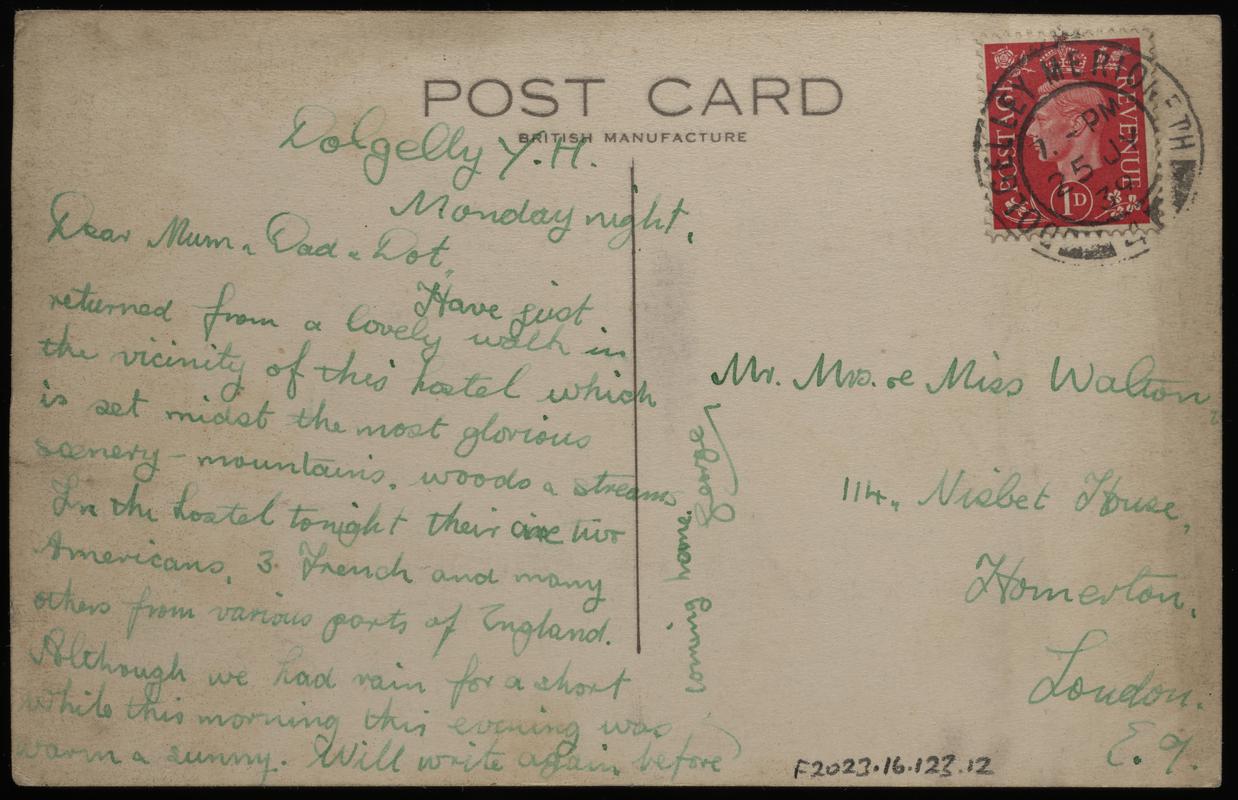 POST CARD
BRITISH MANUFACTURE
Dolgelly Y.H.
Monday night.
Dear Mum & Dad & Dot,
Have just
returned from a lovely walk in
the vicinity of this hostel which
is set midst the most glorious
scenery - mountains, woods & streams
In the hostel tonight their are two
Americans, 3 French and many
others from various parts of England.
Although we had rain for a short
while this morning this evening was
warm & sunny. Will write again before
coming home.
George
Mr. Mrs. & Miss Walton,
114, Nisbet House,
Homerton,
London.
E.9.
POSTAGE REVENUE
1D
DOLGELLEY MERIONETH
PM
25 JY
39
F2023.16.123.12